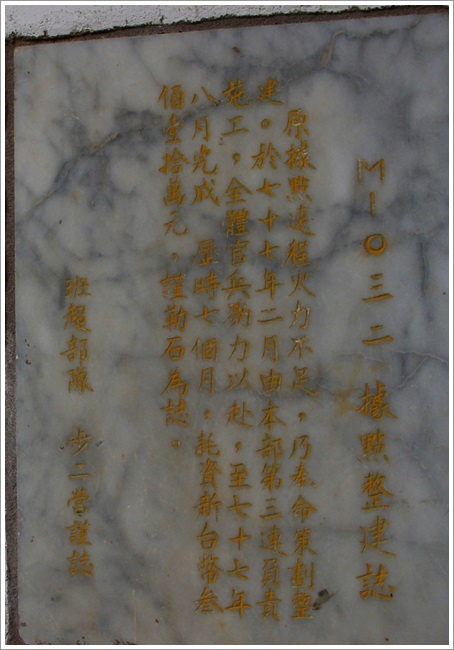 M一0三二據點整建誌
原據點遠程火力不足,乃奉命策劃整
建。於七十七年二月由本部第三連負責
施工,全體官兵勠力以赴,至七十七年
八月完成 歷時七個月,耗資新台幣叁
佰壹拾萬元,謹勒石為誌。
班超部隊 步二營謹誌